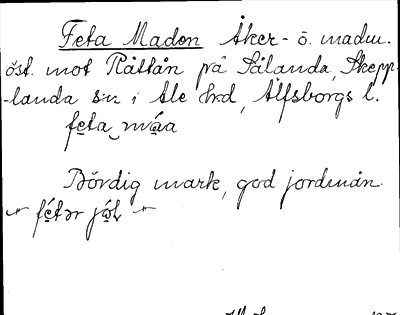 Feta Maden Åker- o. madm.
öst. mot Råttån på Sålanda, Skepp-
-landa sn i Ale hrd, Älfsborgs l.
feta måa
Bördig mark, god jordmån.
fétǝr jól